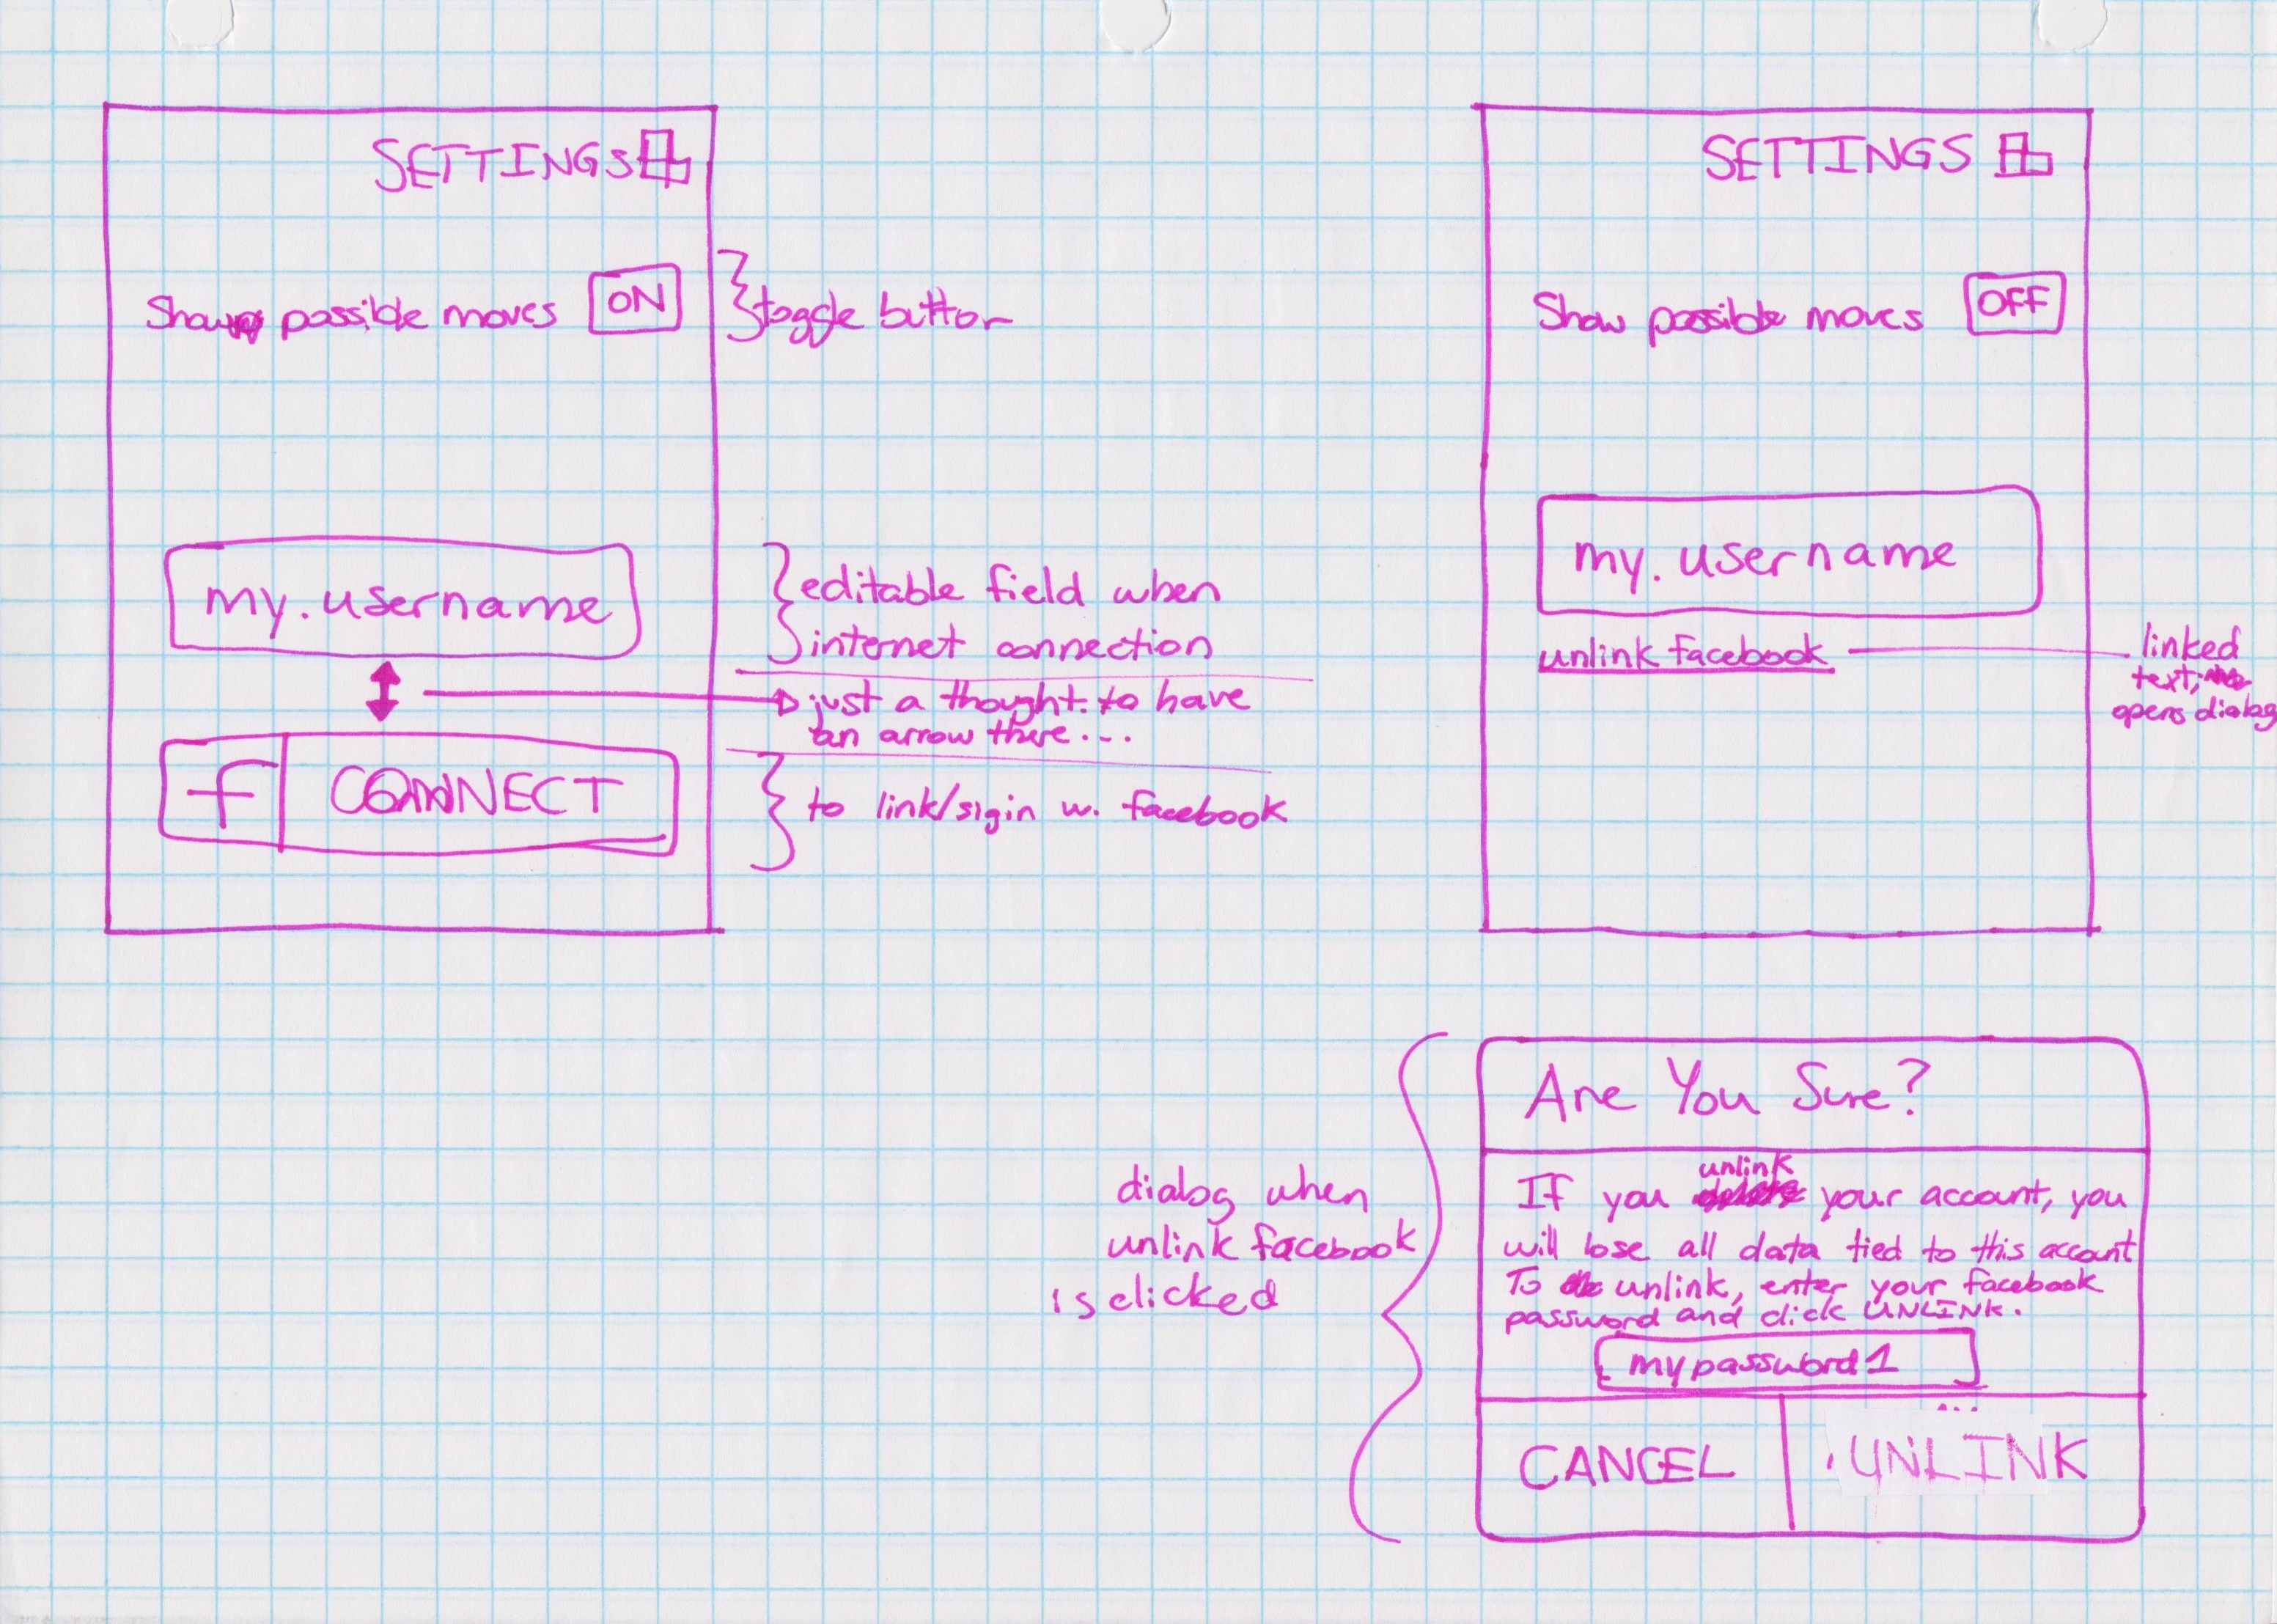 SETTINGS
Show possible moves ON
toggle button
my.username
editable field when
internet connection
just a thought to have
an arrow there...
f CONNECT
to link/sigin w. facebook
SETTINGS
Show possible moves OFF
my.username
unlink facebook
linked
text;
opens dialog
dialog when
unlink facebook
is clicked
Are You Sure?
unlink
If you your account, you
will lose all data tied to this account
To unlink, enter your facebook
password and click UNLINK.
mypassword1
CANCEL UNLINK